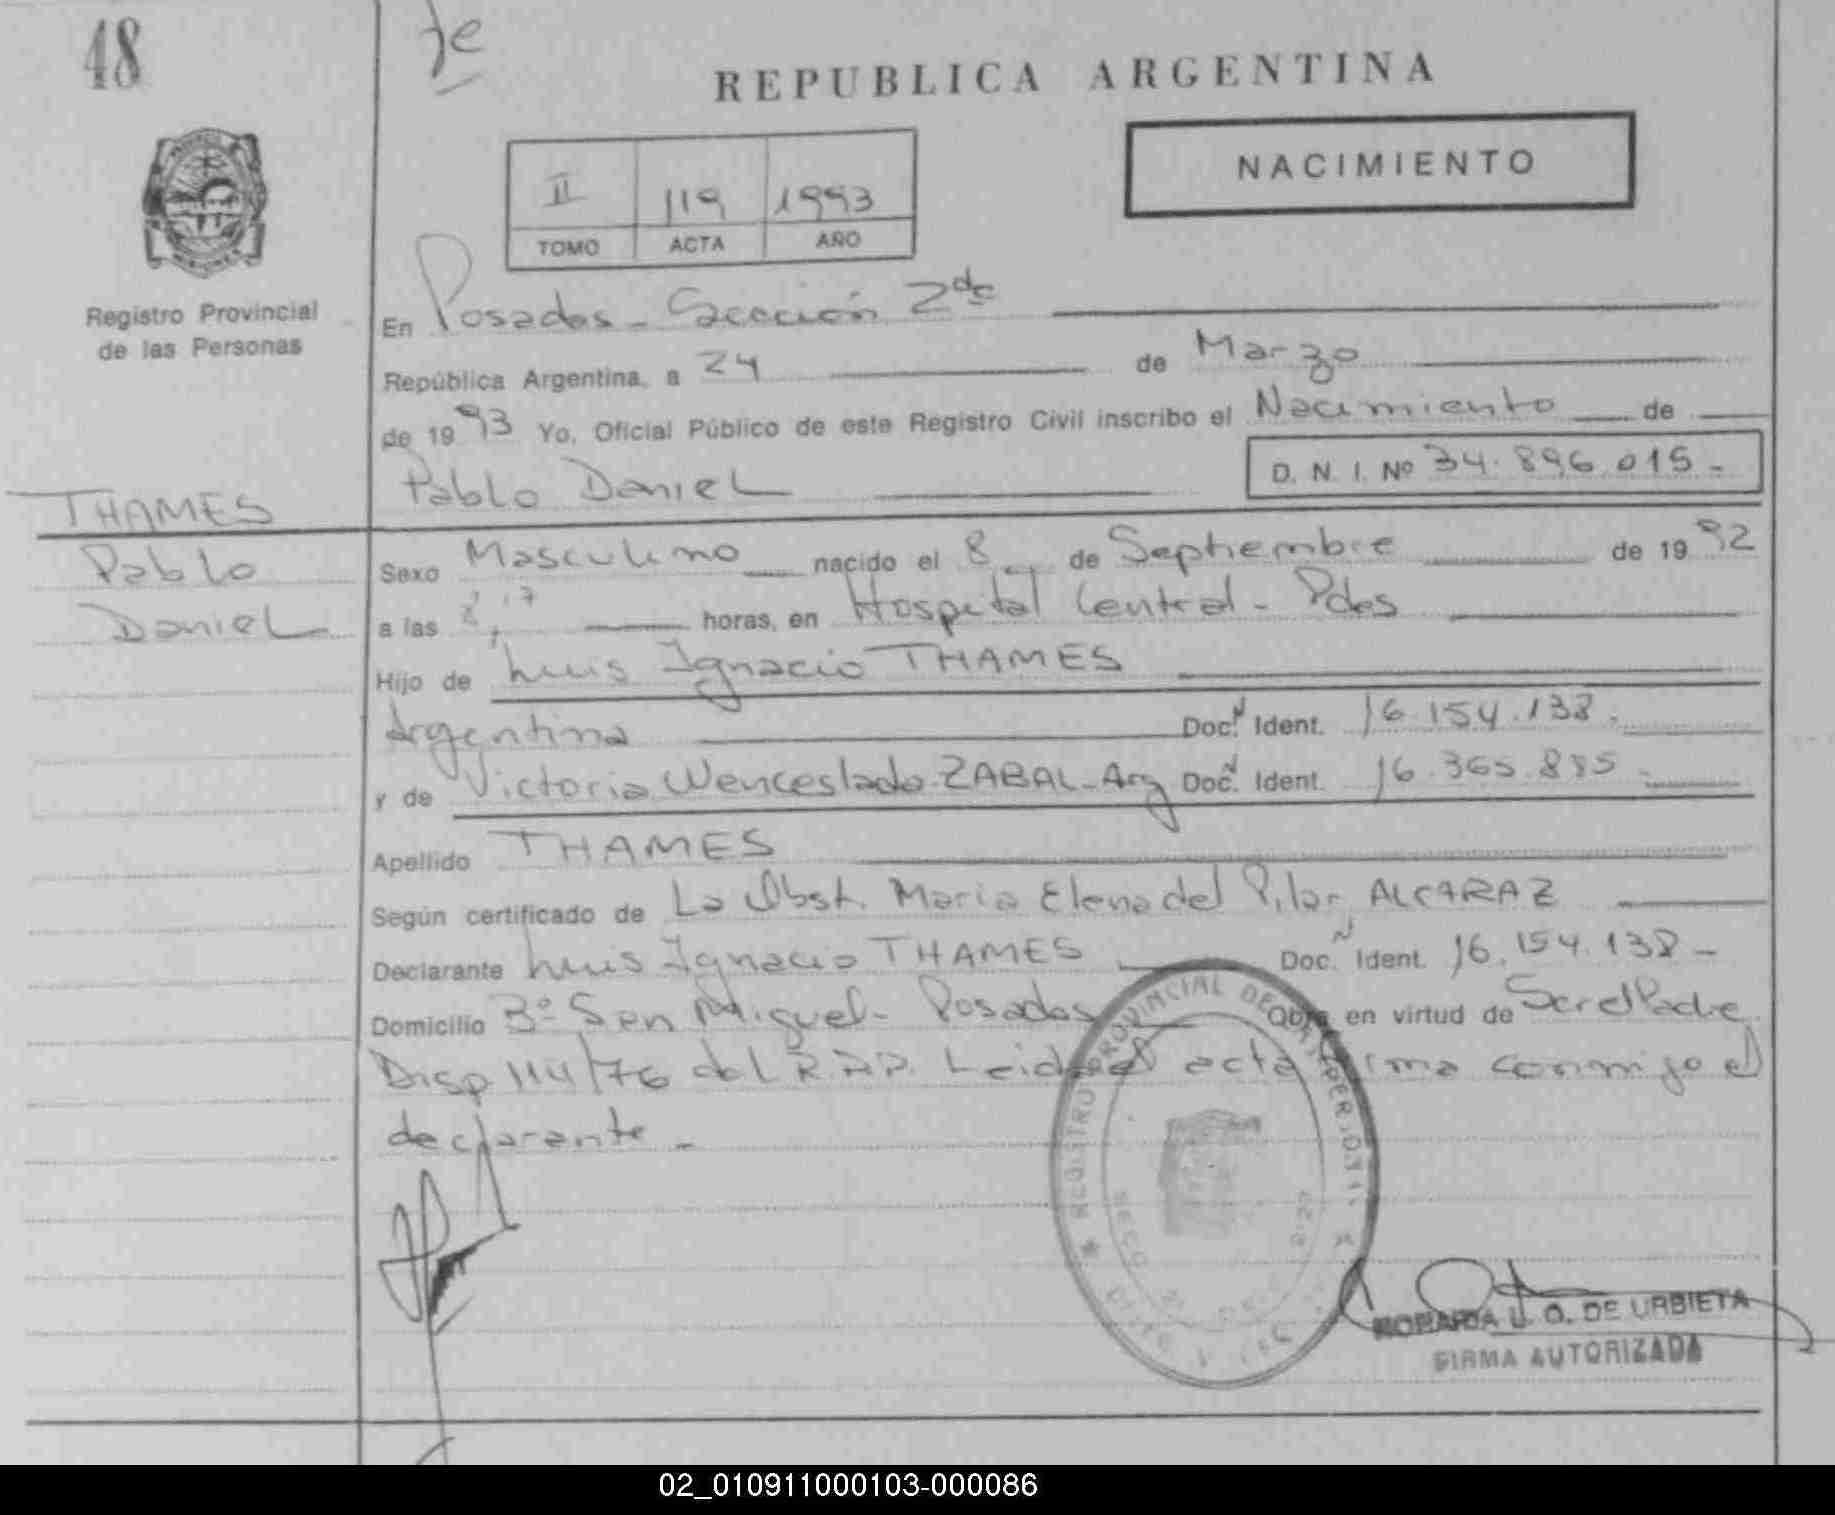 48
REPUBLICA ARGENTINA
NACIMIENTO
II 119 1993
TOMO ACTA AÑO
Registro Provincial
de las Personas
En Posadas - Sección 2da
República Argentina, a 24 de Marzo
de 1993 Yo, Oficial Público de este Registro Civil inscribo el Nacimiento de
Pablo Daniel D. N. I. Nº 34.896.015.-
THAMES
Pablo
Daniel
Sexo Masculino nacido el 8 de Septiembre de 1992
a las horas, en Hospital Central - Pdas
Hijo de Luis Ignacio THAMES
Argentina Doc. Ident. 16.154.138.
y de Victoria Wenceslada ZABAL - Arg Doc. Ident. 16.365.885.
Apellido THAMES
Según certificado de La Obst. Maria Elena del Pilar ALCARAZ
Declarante Luis Ignacio THAMES Doc. Ident. 16.154.138 -
Domicilio Bº San Miguel - Posadas Obra en virtud de Ser el Padre
Disp 114/76 del R.P.P. Leida el acta firma conmigo el
declarante -
REGISTRO PROVINCIAL DE LAS PERSONAS
U. O. DE URBIETA
FIRMA AUTORIZADA
02_010911000103-000086